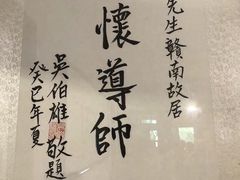 先生贛南故居
懷導師
吳伯雄敬題
癸巳年夏